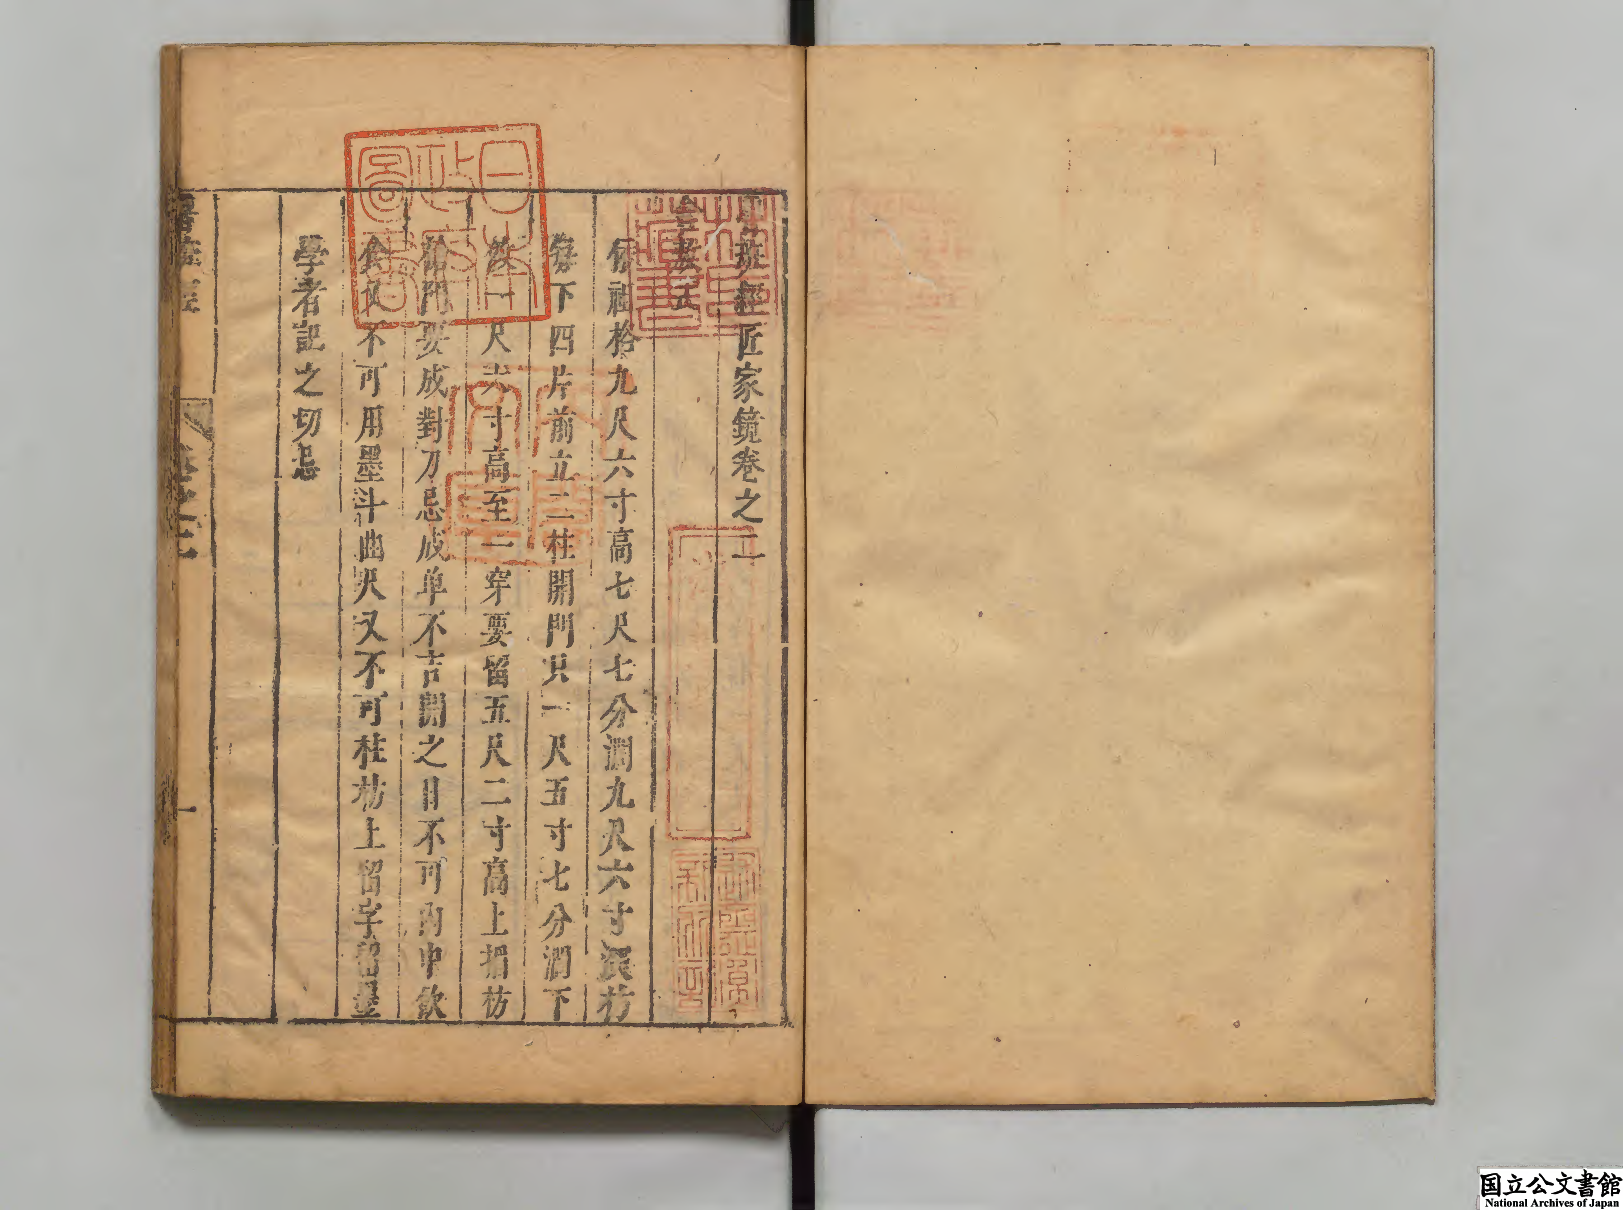 魯班經匠家鏡卷之二
倉敖式
依祖格九尺六寸高七尺七分濶九尺六寸深枋
每下四片前立二柱開門只一尺五寸七分濶下
一尺六寸高至一穿要留五尺二寸高上楣枋
槍門要成對刀忌成单不吉開之日不可内中飲
食又不可用墨斗曲尺又不可柱枋上留字留墨
學者記之切忌
魯班經
卷之二
一
日本政府圖書
林氏藏書
国立公文書館
National Archives of Japan